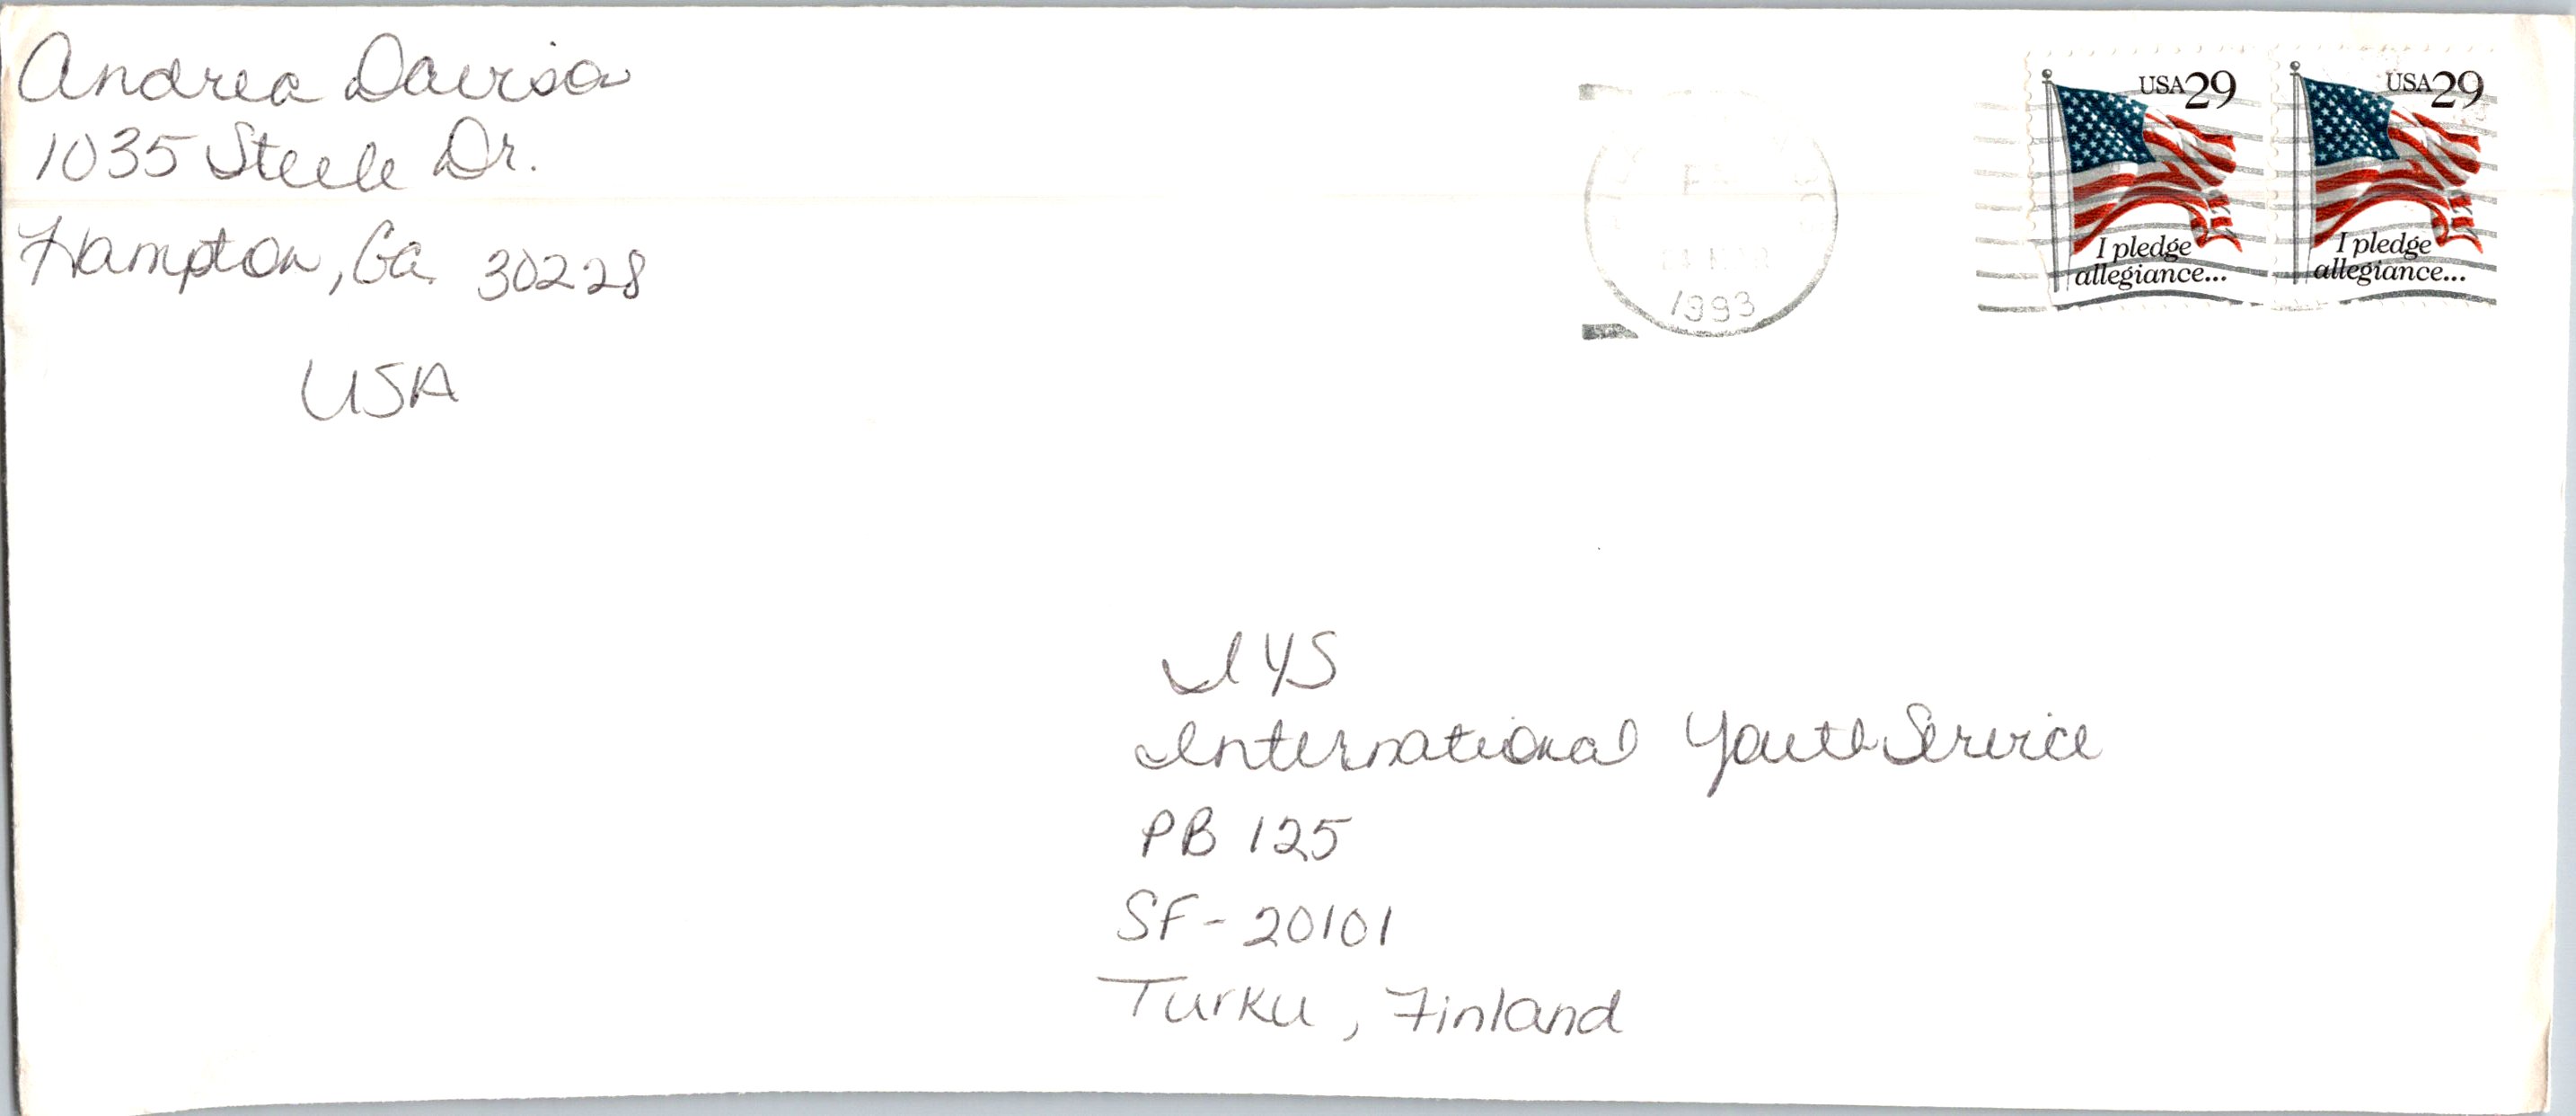 Andrea Davison
1035 Steele Dr.
Hampton, Ga 30228
USA
1993
USA 29
I pledge
allegiance...
USA 29
I pledge
allegiance...
IYS
International Youth Service
PB 125
SF-20101
Turku, Finland